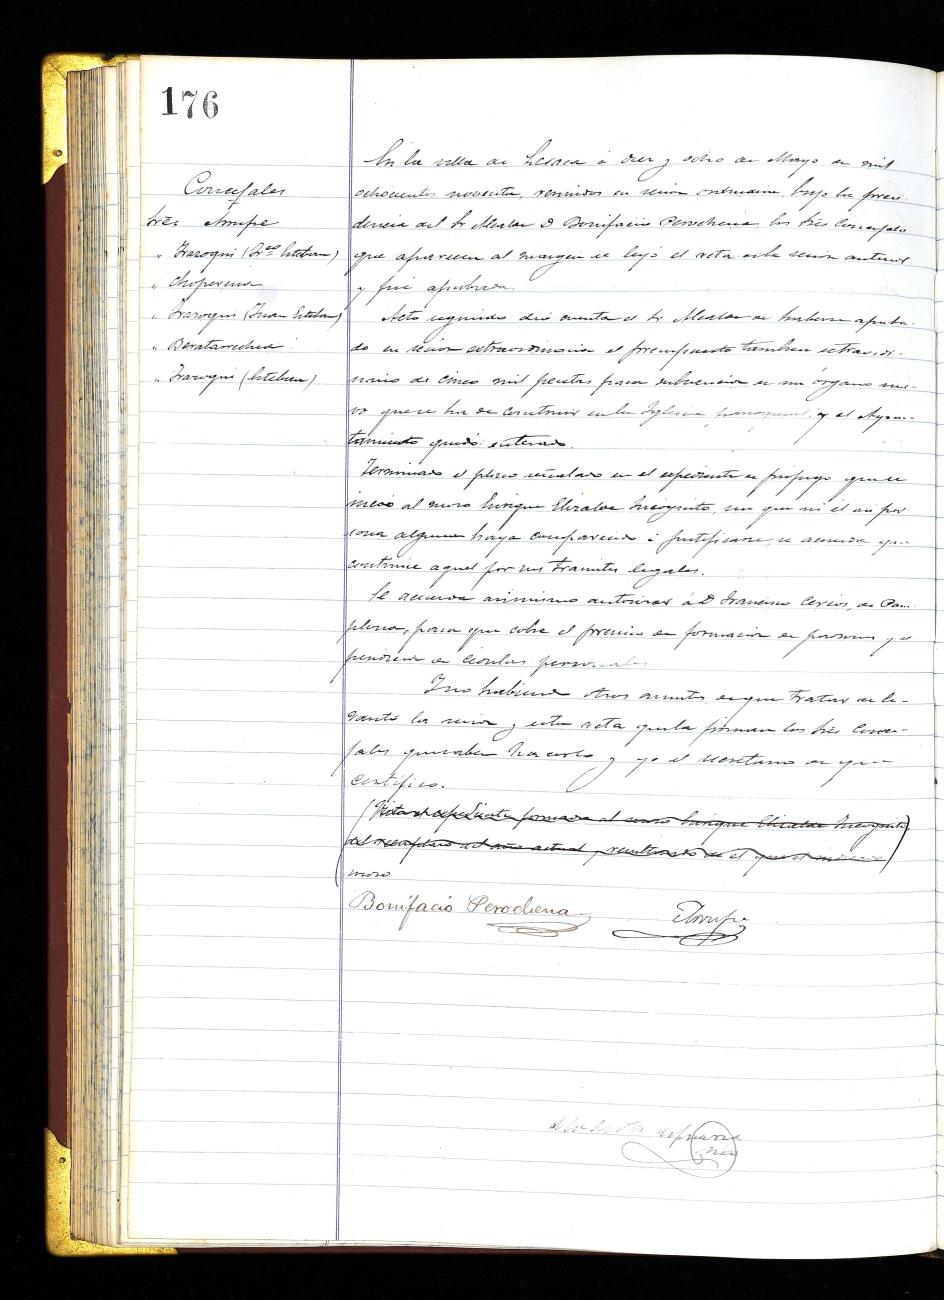 176
Concejales
Sres Arrupe
" Irazoqui (Fco Esteban)
" Choperena
" Irazoqui (Juan Esteban)
" Beratarrechea
" Irazoqui (Esteban)
En la villa de Lesaca á diez y ocho de Mayo de mil
ochocientos noventa, reunidos en sesion ordinaria bajo la presi-
dencia del Sr Alcalde D Bonifacio Perochena, los Sres Concejales
que aparecen al margen se leyó el acta de la sesion anterior
y fué aprobada.
Acto seguido dió cuenta el Sr Alcalde de haberse aproba-
do en sesion extraordinaria el presupuesto tambien extraordi-
nario de cinco mil pesetas para subvencion de un órgano nue-
vo que se ha de construir en la Iglesia parroquial y el Ayun-
tamiento quedó enterado.
Terminado el plazo señalado en el expediente de prófugo que se
inició al mozo Enrique Elizalde Incógnito, sin que ni él ni per-
sona alguna haya comparecido á justificarse, se acuerda que
continue aquel por sus trámites legales.
Se acuerda asimismo autorizar á D Francisco Cervos, de Pam-
plona, para que cobre el premio de formacion de padrones y es-
pendicion de cédulas personales
Y no habiendo otros asuntos de que tratar se le-
vantó la sesion y esta acta que la firman los Sres Conce-
jales que saben hacerlo y yo el secretario de que
certifico.
(Visto el expediente formado al mozo Enrique Elizalde Incognito
del reemplazo del año actual, resultando de el que el indicado
mozo
Bonifacio Perochena
Arrupe